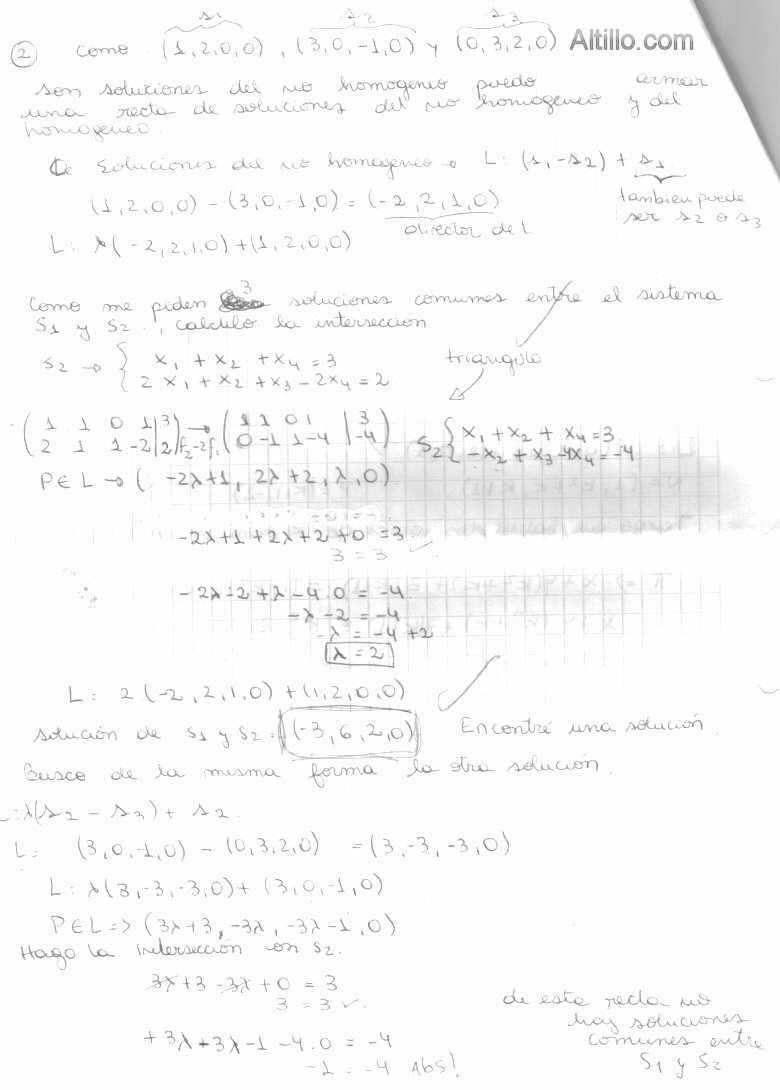 s1 s2 s3
② Como (1,2,0,0) , (3,0,-1,0) y (0,3,2,0) Altillo.com
son soluciones del no homogeneo puedo armar
una recta de soluciones del no homogeneo y del
homogeneo.
de Soluciones del no homogeneo → L: (s1-s2) + s1
(1,2,0,0) - (3,0,-1,0) = (-2,2,1,0)
tambien puede
ser s2 o s3
director de L
L: λ(-2,2,1,0)+(1,2,0,0)
Como me piden 3 soluciones comunes entre el sistema
S1 y S2, calculo la interseccion
S2 → { x1 + x2 + x4 = 3
2x1 + x2 + x3 - 2x4 = 2
triangulo
( 1 1 0 1 | 3 ) → ( 1 1 0 1 | 3 ) S2 { x1 + x2 + x4 = 3
( 2 1 1 -2 | 2 ) f2-2f1 ( 0 -1 1 -4 | -4 ) -x2 + x3 -4x4 = -4
P∈L → ( -2λ+1, 2λ+2, λ, 0)
-2λ+1+2λ+2+0 = 3
3 = 3 ✓
-2λ-2+λ-4.0 = -4
-λ-2 = -4
-λ = -4+2
λ = 2
L: 2(-2,2,1,0)+(1,2,0,0)
solución de S1 y S2 = (-3,6,2,0) Encontré una solución.
Busco de la misma forma la otra solución.
L: λ(s2 - s3) + s2.
L: (3,0,-1,0) - (0,3,2,0) = (3,-3,-3,0)
L: λ(3,-3,-3,0)+ (3,0,-1,0)
P∈L => (3λ+3, -3λ, -3λ-1, 0)
Hago la intersección con S2.
3λ+3-3λ+0 = 3
3 = 3 ✓.
+3λ+3λ-1-4.0 = -4
-1 = -4 Abs!
de esta recta no
hay soluciones
comunes entre
S1 y S2